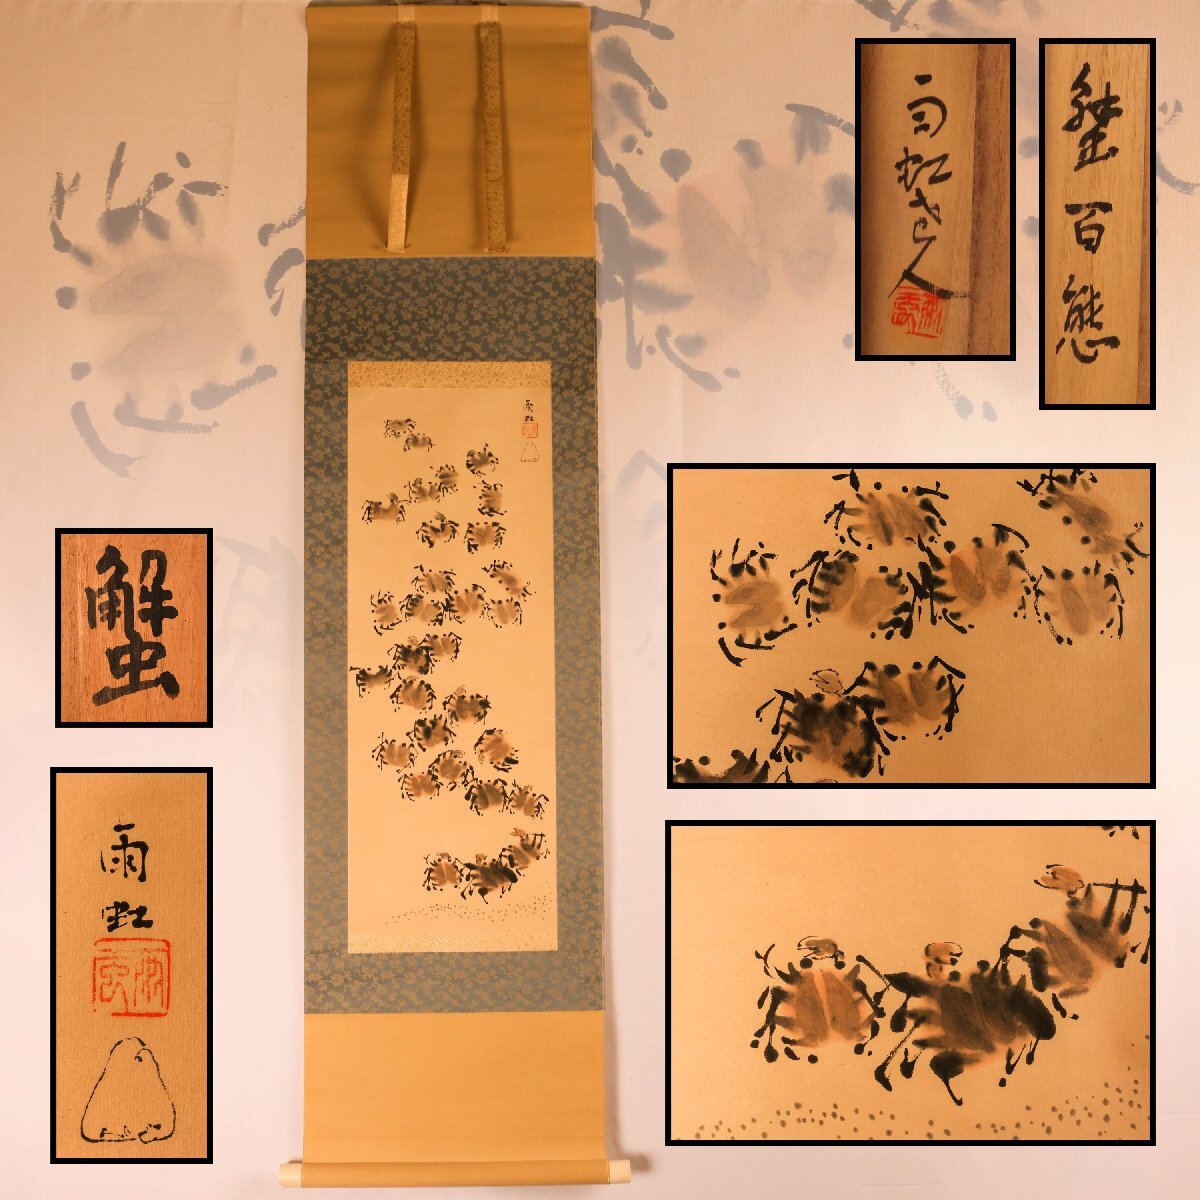 雨虹
雨虹老人
蟹百態
蟹
雨虹